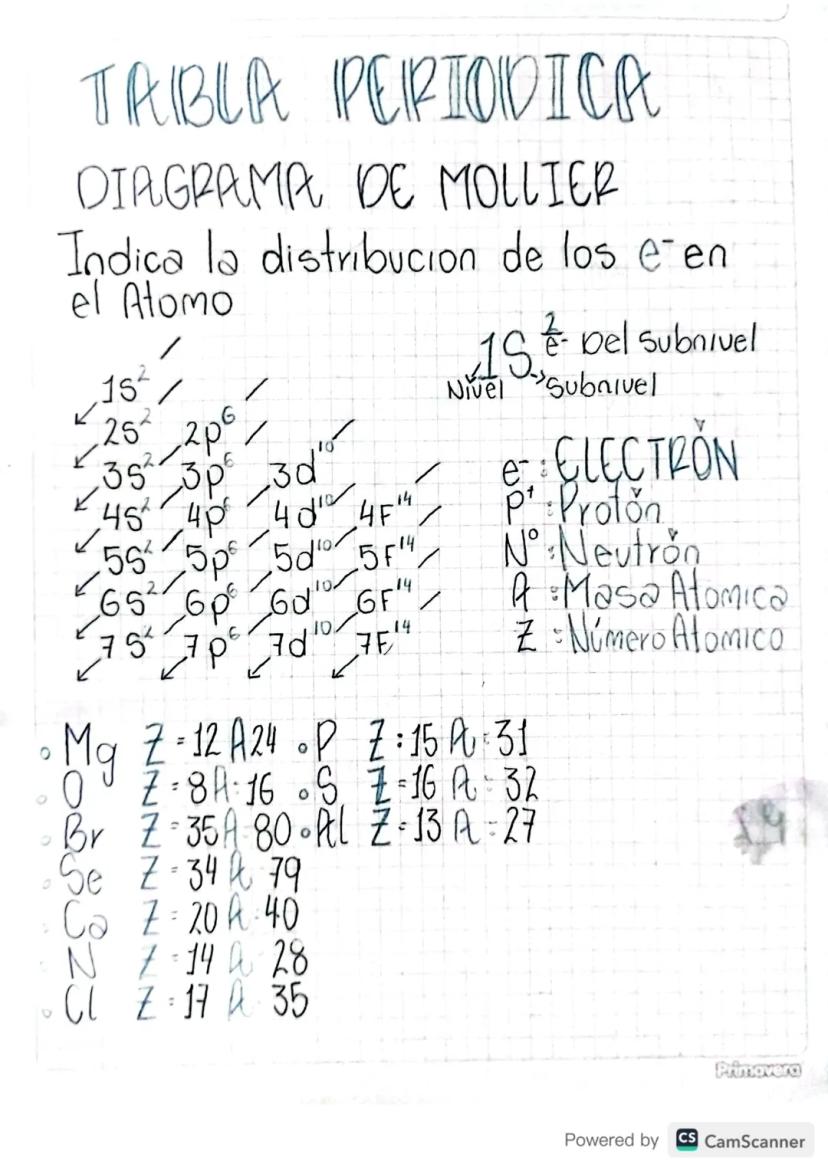 TABLA PERIODICA
DIAGRAMA DE MOLLIER
Indica la distribucion de los e⁻ en
el Atomo
1S² e⁻ Del subnivel
Nivel Subnivel
1s²
2s² 2p⁶
3s² 3p⁶ 3d¹⁰
4s² 4p⁶ 4d¹⁰ 4F¹⁴
5s² 5p⁶ 5d¹⁰ 5F¹⁴
6s² 6p⁶ 6d¹⁰ 6F¹⁴
7s² 7p⁶ 7d¹⁰ 7F¹⁴
e⁻: ELECTRÓN
P⁺: Protón
N°: Neutrón
A: Masa Atomica
Z: Número Atomico
Mg Z=12 A 24 P Z:15 A=31
O Z=8 A=16 S Z=16 A=32
Br Z=35 A 80 Al Z=13 A=27
Se Z=34 A 79
Ca Z=20 A 40
N Z=14 A 28
Cl Z=17 A 35
Primavera
Powered by CS CamScanner